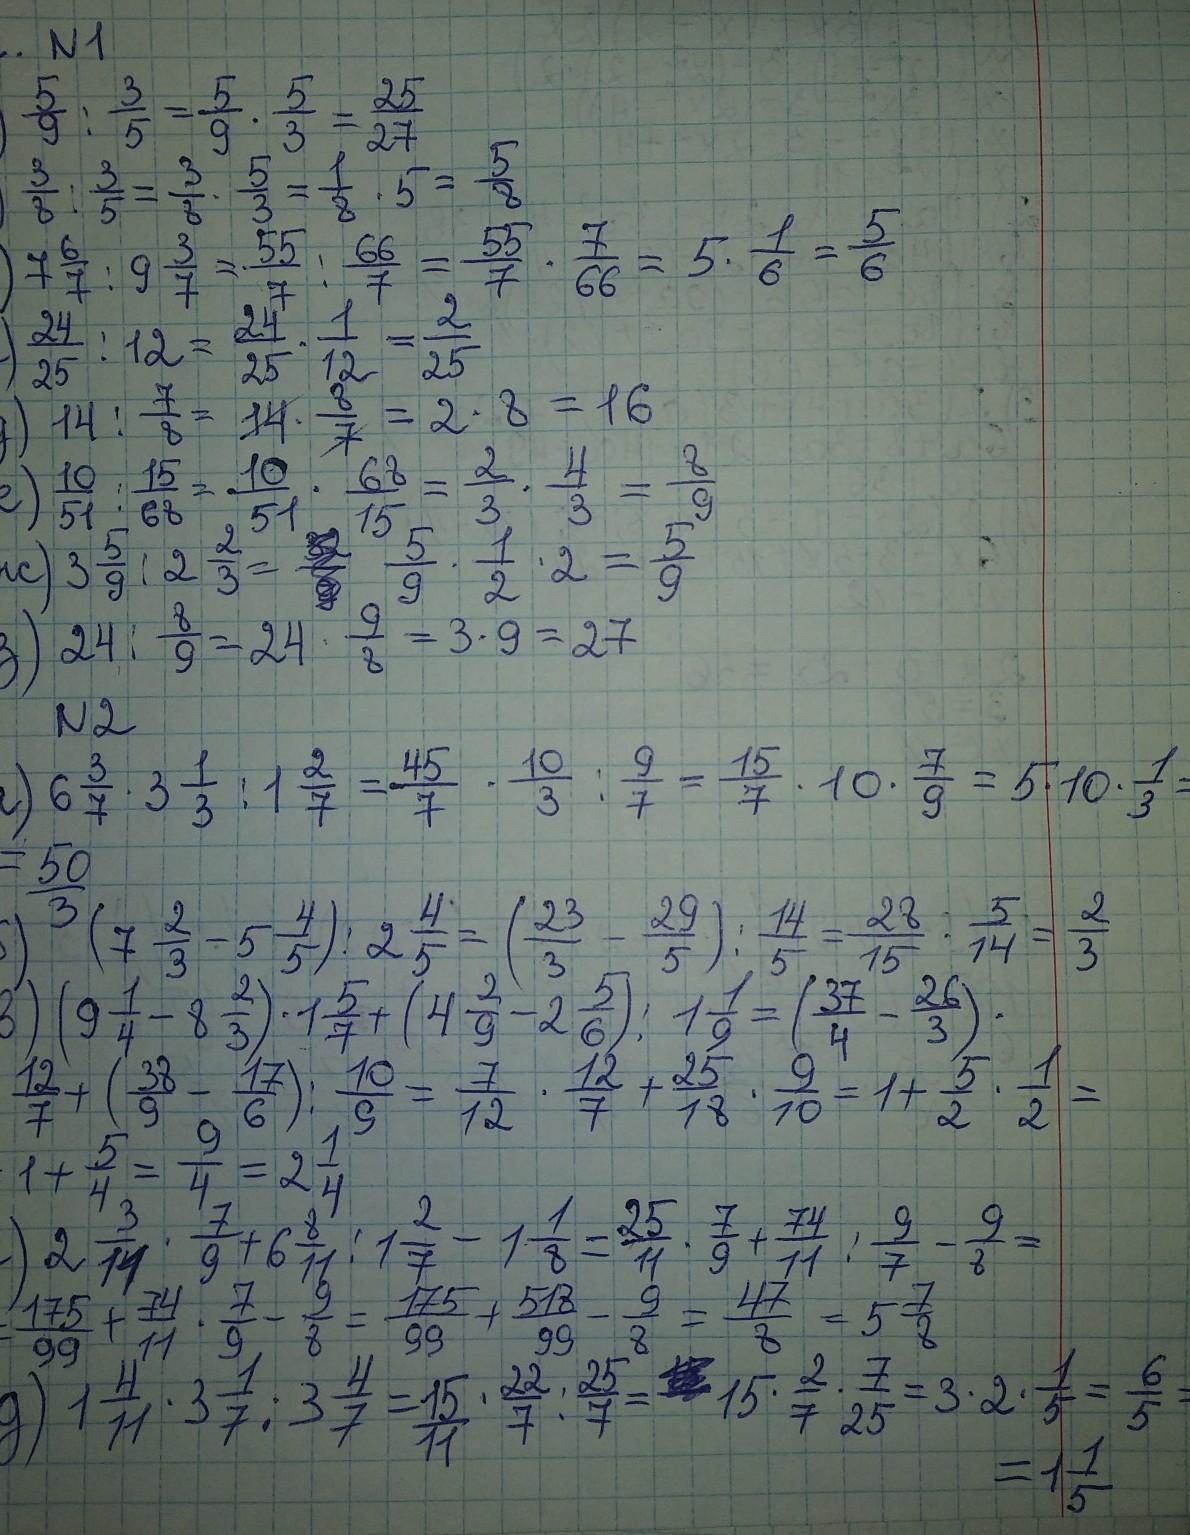 N1
5/9 : 3/5 = 5/9 · 5/3 = 25/27
3/8 : 3/5 = 3/8 · 5/3 = 1/8 · 5 = 5/8
) 7 6/7 : 9 3/7 = 55/7 : 66/7 = 55/7 · 7/66 = 5 · 1/6 = 5/6
) 24/25 : 12 = 24/25 · 1/12 = 2/25
д) 14 : 7/8 = 14 · 8/7 = 2 · 8 = 16
е) 10/51 : 15/68 = 10/51 · 68/15 = 2/3 · 4/3 = 8/9
ж) 3 5/9 : 2 2/3 = 5/9 · 1/2 · 2 = 5/9
з) 24 : 8/9 = 24 · 9/8 = 3 · 9 = 27
N2
а) 6 3/7 · 3 1/3 : 1 2/7 = 45/7 · 10/3 : 9/7 = 15/7 · 10 · 7/9 = 5 · 10 · 1/3 =
= 50/3
б) (7 2/3 - 5 4/5) : 2 4/5 = (23/3 - 29/5) : 14/5 = 28/15 · 5/14 = 2/3
в) (9 1/4 - 8 2/3) · 1 5/7 + (4 2/9 - 2 5/6) : 1 1/9 = (37/4 - 26/3) ·
12/7 + (38/9 - 17/6) : 10/9 = 7/12 · 12/7 + 25/18 · 9/10 = 1 + 5/2 · 1/2 =
1 + 5/4 = 9/4 = 2 1/4
) 2 3/11 · 7/9 + 6 8/11 : 1 2/7 - 1 1/8 = 25/11 · 7/9 + 74/11 : 9/7 - 9/8 =
= 175/99 + 74/11 · 7/9 - 9/8 = 175/99 + 518/99 - 9/8 = 47/8 = 5 7/8
д) 1 4/11 · 3 1/7 : 3 4/7 = 15/11 · 22/7 : 25/7 = 15 · 2/7 · 7/25 = 3 · 2 · 1/5 = 6/5 =
= 1 1/5